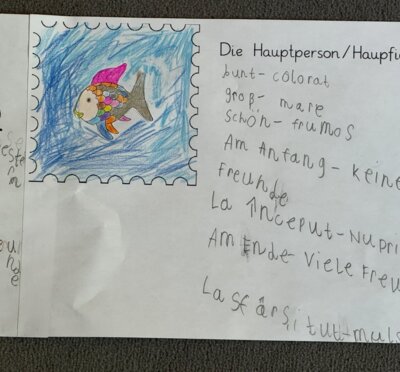 Die Hauptperson/Haupfi
bunt- colorat
groß- mare
schön- frumos
Am Anfang- Keine
Freunde
La Început-Nupri
Am Ende- Viele Freu
La sfârși tutt-muls